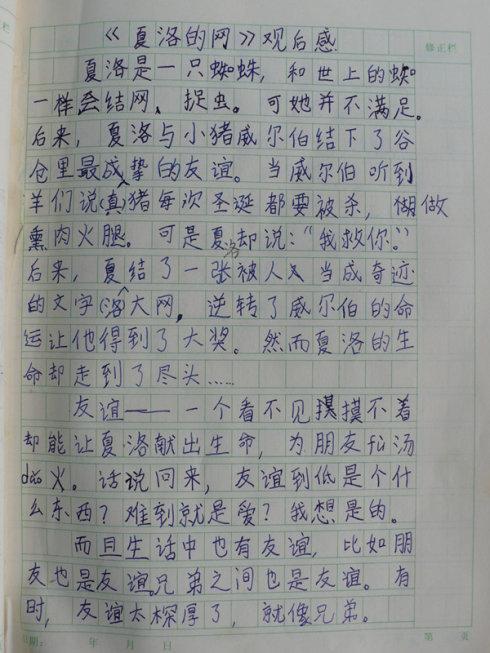 《夏洛的网》观后感
修正栏
夏洛是一只蜘蛛,和世上的蜘
一样会结网、捉虫。可她并不满足。
后来,夏洛与小猪威尔伯结下了谷
仓里最成挚的友谊。当威尔伯听到
羊们说猪每次圣诞都要被杀,做
熏肉火腿。可是夏洛却说:“我救你。”
后来,夏结了一张被人又当成奇迹
的文字大网,逆转了威尔伯的命
运让他得到了大奖。然而夏洛的生
命却走到了尽头……
友谊——一个看不见摸不着
却能让夏洛献出生命,为朋友fù汤
dǎo火。话说回来,友谊到低是个什
么东西?难到就是爱?我想是的。
而且生话中也有友谊,比如朋
友也是友谊兄弟之间也是友谊。有
时,友谊太深厚了,就像兄弟。
日期: 年 月 日 第 页